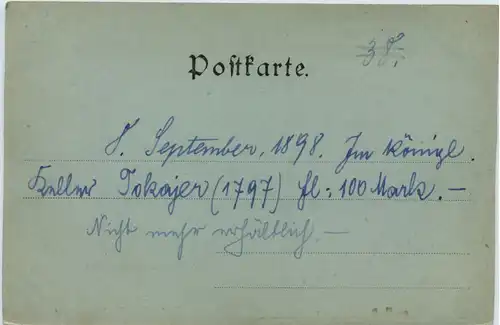 38.
Postkarte.
8. September. 1898. Im königl.
Keller Tokajer (1797) fl: 100 Mark. –
Nicht mehr erhältlich. –